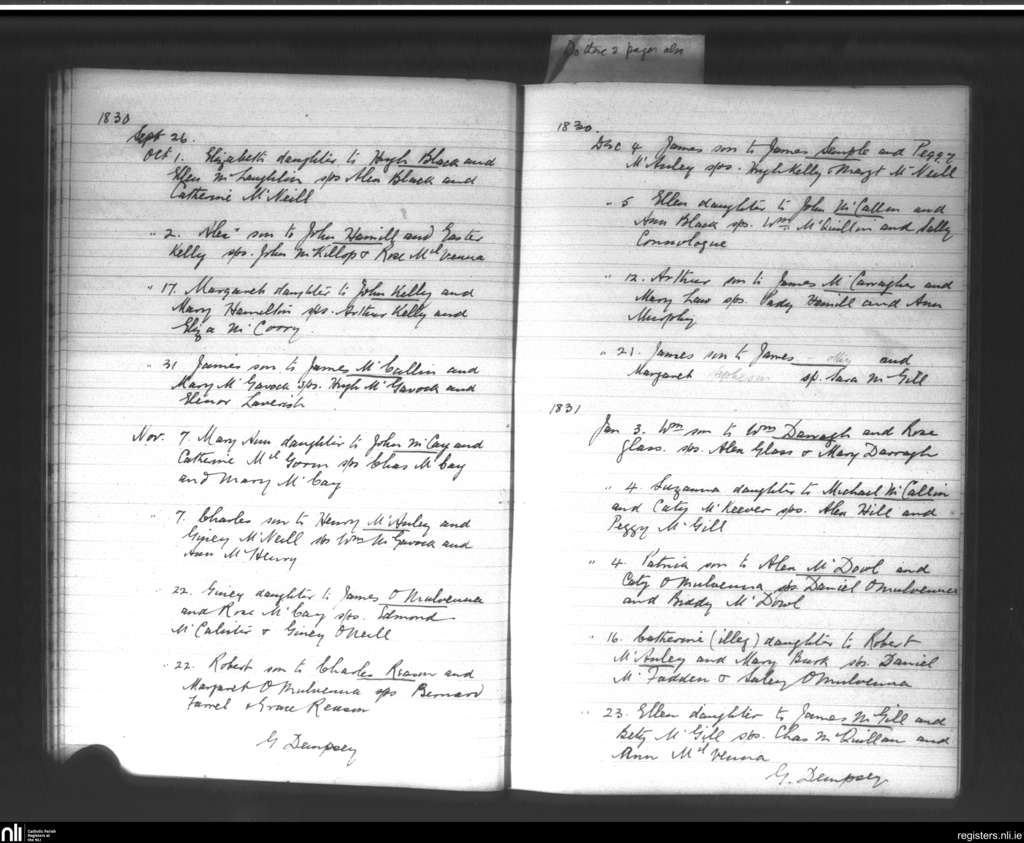 Do these 2 pages also
1830
Sept 26.
Oct 1. Elizabeth daughter to Hugh Black and
Ellen McLaughlin sps Alex Black and
Catherine McNeill
" 2. Alexr son to John Hamill and Easter
Kelly sps. John McKillop & Rose Mcl Venna
" 17. Margaret daughter to John Kelly and
Mary Hamelton sps. Arthur Kelly and
Eliza McCorry.
" 31 James son to James McCallin and
Mary McGavock sps. Hugh McGavock and
Elinor Laverish
Nov. 7. Mary Ann daughter to John McCay and
Catherine Mcl Gorm sps Chas McCay
and Mary McCay
" 7. Charles son to Henry McAuley and
Giney McNeill sps Wm McGavock and
Ann McHenry
" 22. Giney daughter to James OMulvenna
and Rose McCay sps. Edmond
McCalister & Giney ONeill
" 22. Robert son to Charles Reason and
Margaret OMulvenna sps Bernard
Farrel & Grace Reason
G Dempsey
1830.
Dec 4. James son to James Semple and Peggy
McAuley sps. Hugh Kelly & Margt McNeill
" 5 Ellen daughter to John McCallin and
Ann Black sps. Wm McQuillan and Sally
Connologue
" 12. Arthur son to James McCarragher and
Mary Law sps. Pady Hamill and Ann
Murphy
" 21. James son to James and
Margaret sp. Sara McGill
1831
Jan 3. Wm son to Wm Darragh and Rose
Glass. sps. Alex Glass & Mary Darragh
" 4. Suzanna daughter to Michael McCallin
and Caty McKeever sps. Alex Hill and
Peggy McGill
" 4. Patrick son to Alex McDowl and
Caty OMulvenna sps Daniel OMulvenna
and Biddy McDowl
" 16. Catherine (illeg) daughter to Robert
McAuley and Mary Burk sps. Daniel
McFadden & OMulvenna
" 23. Ellen daughter to James McGill and
Betty McGill sps. Chas McQuillan and
Ann Mcl Venna
G. Dempsey
nli
Catholic Parish
Registers at
the NLI
registers.nli.ie